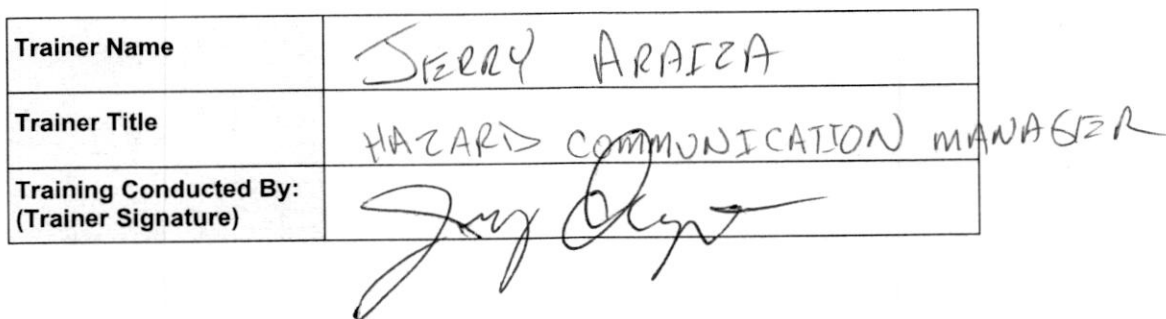 Trainer Name JERRY ARAIZA
Trainer Title HAZARD COMMUNICATION MANAGER
Training Conducted By:
(Trainer Signature)